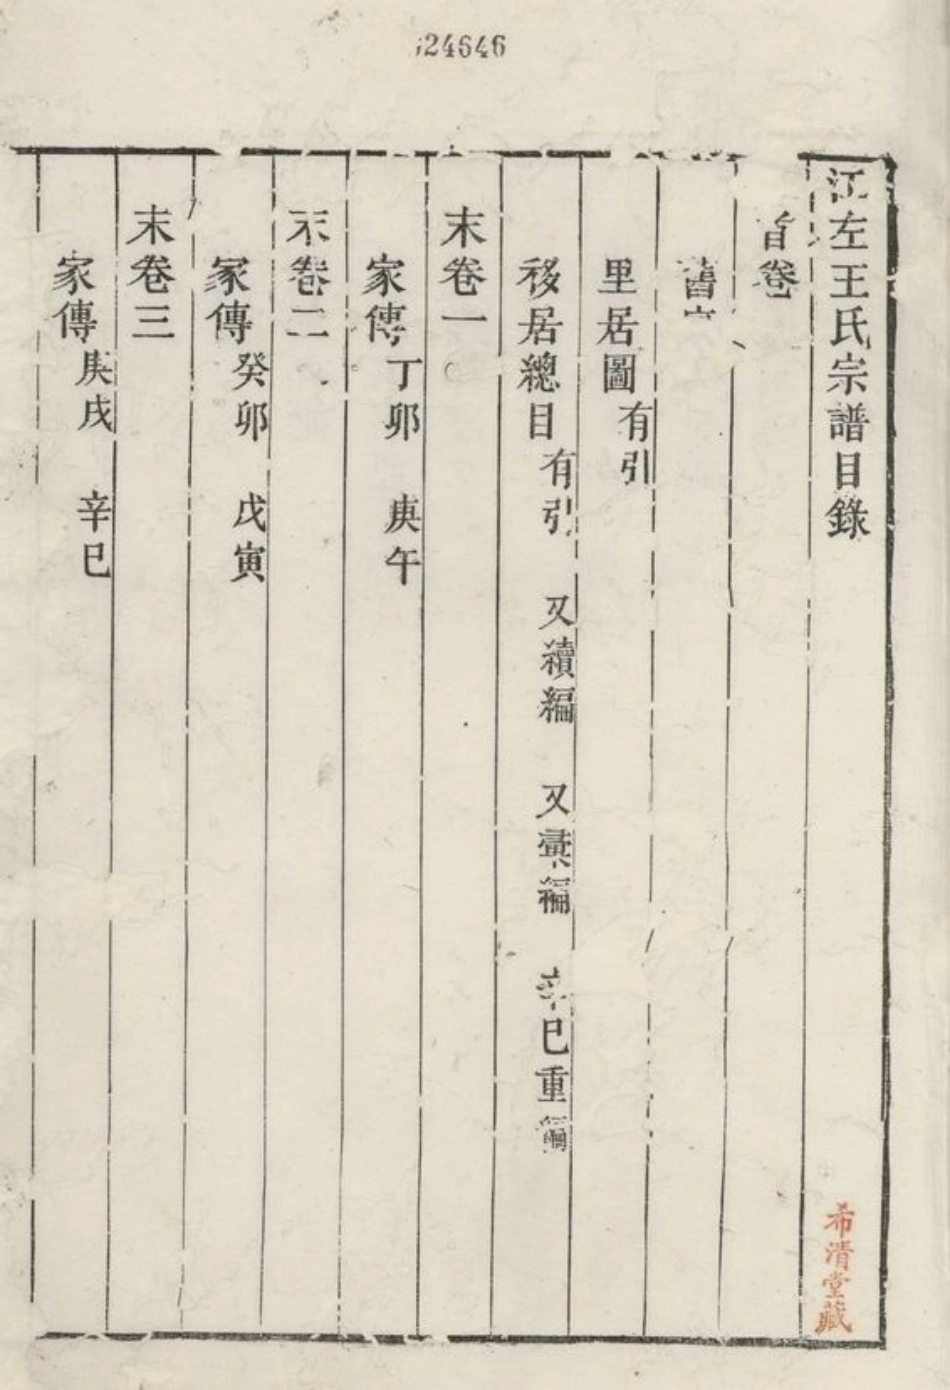 324646
江左王氏宗譜目錄
首卷
舊序
里居圖 有引
移居總目 有引 又續編 又彙編 辛巳重編
末卷一
家傳 丁卯 庚午
末卷二
家傳 癸卯 戊寅
末卷三
家傳 庚戌 辛巳
希清堂藏